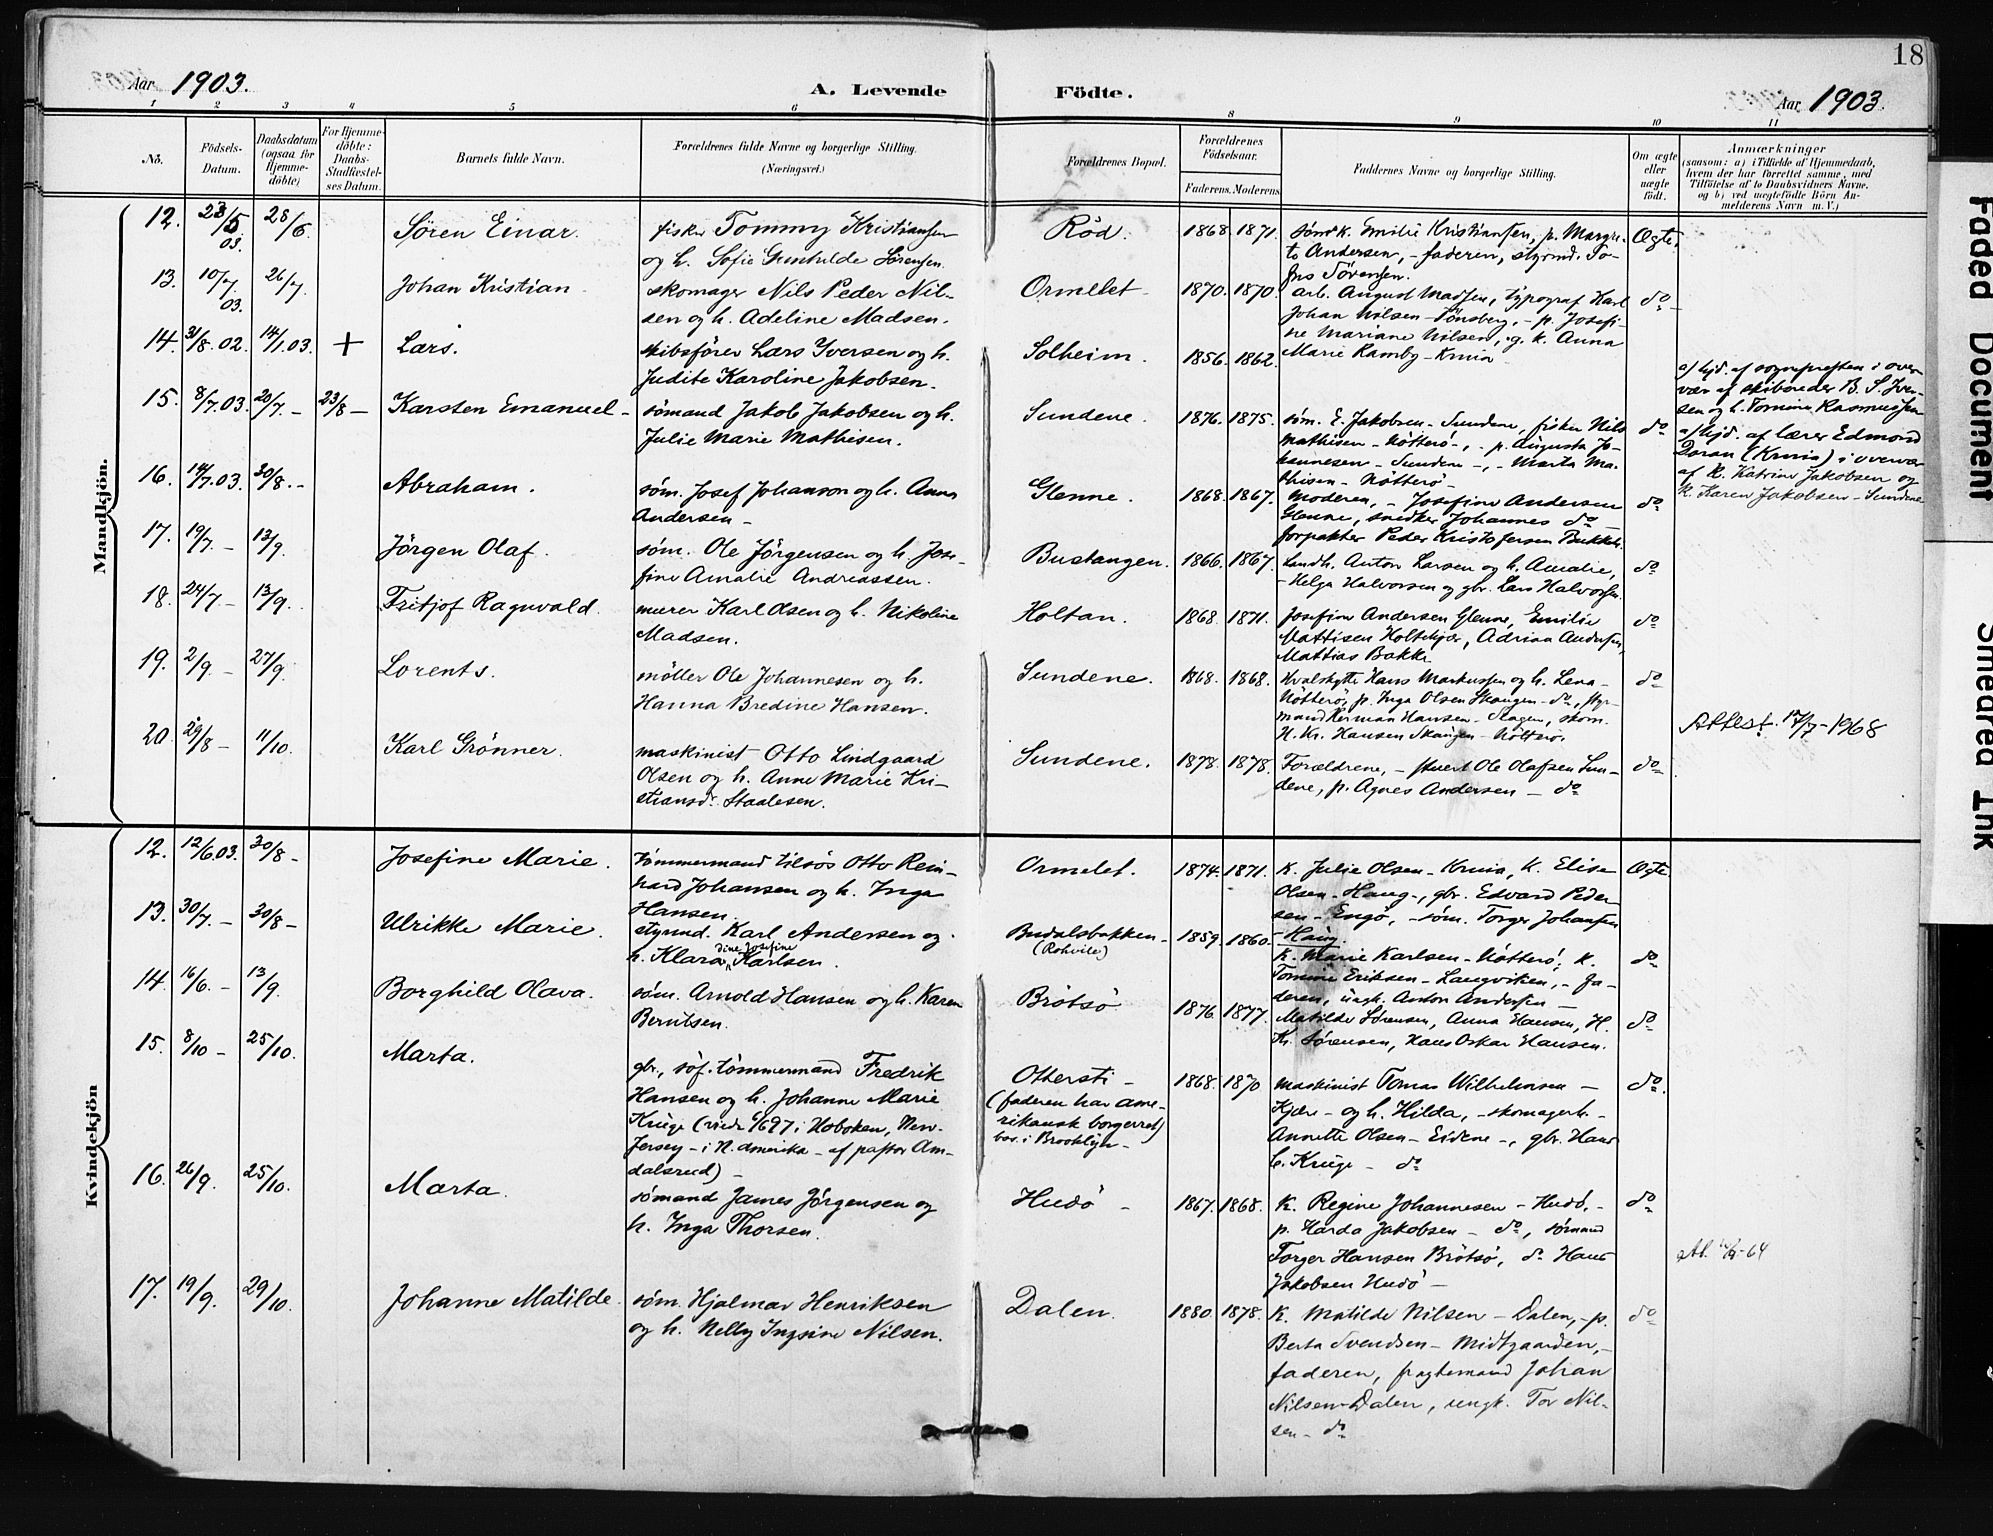 18
Aar 1903.
A. Levende Födte.
Aar 1903.
1 2 3 4 5 6 8 9 10 11
No.
Födsels-Datum.
Daabsdatum (ogsaa for Hjemme-döbte)
For Hjemme-döbte: Daabs-Stadfæstel-ses Datum.
Barnets fulde Navn.
Forældrenes fulde Navne og borgerlige Stilling.
(Næringsvei.)
Forældrenes Bopæl.
Forældrenes Födselsaar.
Faderens. Moderens
Faddernes Navne og borgerlige Stilling.
Om ægte eller uægte födt.
Anmærkninger
(saasom: a) i Tilfælde af Hjemmedaab,
hvem der har forrettet samme, med
Tilföielse af to Daabsvidners Navne.
og b) ved uægtefödte Börn An-
melderens Navn m. V.)
Mandkjön.
12. 23/5 03. 28/6. Søren Einar. fisker Tommy Kristiansen
og h. Sofie Gunhilde Sørensen.
Röd. 1868 1871. sömd k. Emilie Kristiansen, p. Margre-
te Andersen, - faderen, styrmd. Jo-
hns Sörensen.
Ægte.
13. 10/7 03. 26/7. Johan Kristian skomager Nils Peder Nil-
sen og h. Adeline Madsen.
Ormelet 1870. 1870. arb. August Madsen, typograf Karl
Johan Nilsen - Tönsberg, - p. Josefi-
ne Mariane Nilsen, g. k. Anna
Marie Ramby - Krnia
do
14. 31/8. 02. 14/1.03. + Lars. skibsförer Lars Iversen og h.
Judite Karoline Jakobsen.
Solheim. 1856. 1862.
a) hjd. af sognepresten i over-
vær af skibsreder B. S. Iver-
sen og h. Tomine Rasmussen
15. 8/7.03. 20/7. - 23/8 - Karsten Emanuel - sömand Jakob Jakobsen og h.
Julie Marie Mathisen.
Sundene. 1876. 1875. söm. E. Jakobsen - Sundene, fisker Nils
Mathisen - Nötterö -, - p. Augusta Jo-
hannesen - Sundene -, - Marta Ma-
thisen - Nötterö -
do
a) hjd. af lærer Edmond
Doran (Krnia) i overvær
af K. Katrine Jakobsen og
K. Karen Jakobsen - Sundene
16. 14/7.03. 30/8. - Abraham. söm. Josef Johanson og h. Anna
Andersen -
Glenne. 1868. 1867. Moderen, - Josefine Andersen
Glenne, snedker Johannes do -
forpakter Peder Kristofersen Bukkeh.
do
17. 19/7. - 13/9. Jörgen Olaf. söm. Ole Jörgensen og h. Jose-
fine Amalie Andreassen.
Bustangen. 1866. 1867. Landh. Anton Larsen og h. Amalie,
- Helga Halvorsen og gbr. Lars Halvorsen.
do
18. 24/7. - 13/9. Fritjof Ragnvald. murer Karl Olsen og h. Nikoline
Madsen.
Holtan. 1868. 1871. Josefine Andersen Glenne, Emilie
Mattisen Holtekjær, Adrian Andersen,
Mattias Bakke
do
19. 2/9. - 27/9. Lorents. möller Ole Johannesen og h.
Hanna Bredine Hansen.
Sundene. 1868. 1868. Hvalskytte Hans Markussen og h. Lena -
Nötterö, p. Inga Olsen Skangen - do, styr-
mand Herman Hansen - Skagen, skom.
H. Kr. Hansen Skangen - Nötterö.
do
20. 29/8 - 11/10. Karl Grönner. maskinist Otto Lindgaard
Olsen og h. Anne Marie Kri-
stiansd. Staalesen.
Sundene. 1878. 1878. Forældrene, - stuert Ole Olafsen Sun-
dene, p. Agnes Andersen - do
do
Attest 17/7-1968
Kvindekjön
12. 12/6.03. 30/8 - Josefine Marie. tömmermand tilsøs Otto Rein-
hard Johansen og h. Inga
Hansen.
Ormelet. 1874. 1871. K. Julie Olsen - Krnia, K. Elise
Olsen - Haug -, gbr. Edvard Peder-
sen - Engö, - söm. Torger Johansen
- Haug.
Ægte
13. 30/7. - 30/8 - Ulrikke Marie. styrmd. Karl Andersen og
h. Klara dine Josefine Karlsen.
Budalsbakken - 1859. 1860. K. Marie Karlsen - Nötterö, K.
Tomine Eriksen - Langviken, - fa-
deren, ungk. Anton Andersen -
do
14. 16/6. - 13/9. Borghild Olava. söm. Arnold Hansen og h. Karen
Berntsen.
Brötsö 1876. 1877. Matilde Sörensen, Anna Hansen, H.
Kr. Sörensen, Hans Oskar Hansen.
do
15. 8/10 - 25/10. Marta. gbr., söf. tömmermand Fredrik
Hansen og h. Johanne Marie
Krüge (viede 6/6 97 i Hoboken, New-
Jersey - i N. Amerika - af pastor Am-
dalsrud) -
Ottersti -
(faderen har ame-
rikansk borgerret)
bos. i Brooklyn -
1868. 1870 maskinist Tomas Wilhelmsen -
Kjære - og h. Hilda, - skomagerh. -
Annette Olsen - Eidene -, gbr. Hans
C. Krüge - do
do.
16. 26/9. 25/10. Marta. sömand James Jörgensen og
h. Inga Thorsen.
Hudö - 1867. 1868. K. Regine Johannesen - Hudö, -
p. Harda Jakobsen - do, sömand
Torger Hansen Brötsö, do Hans
Jakobsen Hudö -
do
17. 19/9. 29/10. Johanne Matilde. söm. Hjalmar Henriksen
og h. Nelly Ingsine Nilsen.
Dalen. 1880. 1878. K. Matilde Nilsen - Dalen, - p.
Berta Svendsen - Midtgaarden, -
faderen, fragtemand Johan
Nilsen - Dalen, ungk. Tor Nil-
sen - do
do
Faded Document
Smeared Ink